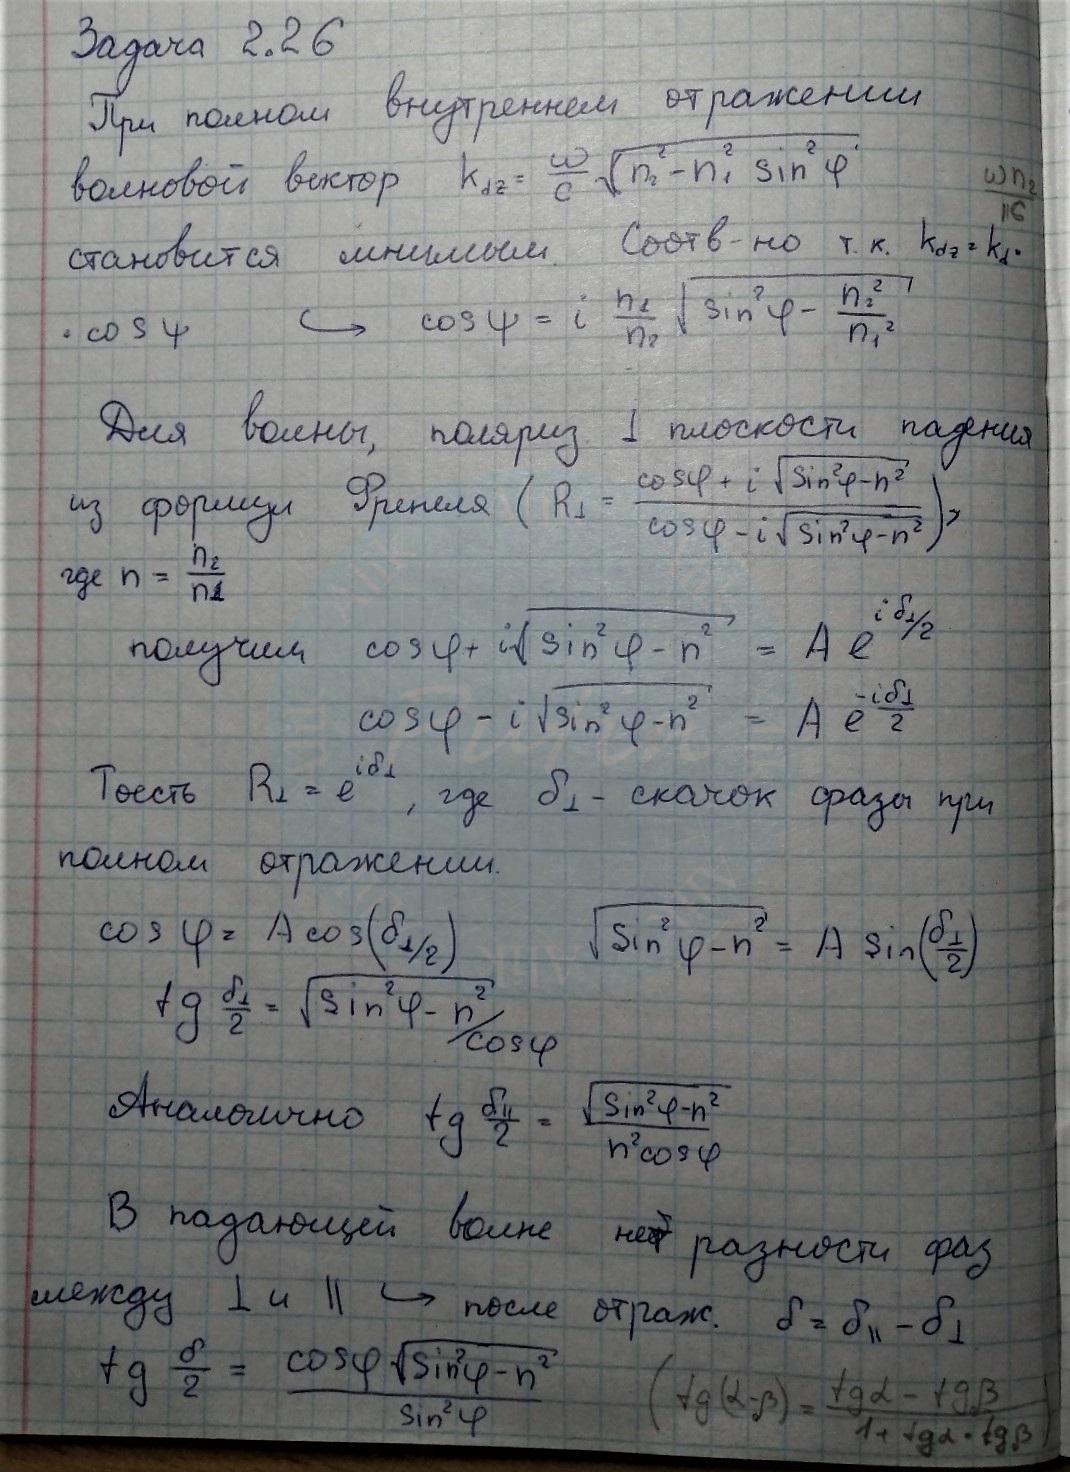 Задача 2.26
При полном внутреннем отражении
волновой вектор k_dz = ω/c √(n₂² - n₁² sin²φ)
ωn₂/
становится мнимым. Соотв-но т.к. k_dz = k_d ·
· cos ψ ↪ cos ψ = i n₁/n₂ √(sin²φ - n₂²/n₁²)
Для волны, поляриз. ⊥ плоскости падения
из формул Френеля (R⊥ = (cosφ + i√(sin²φ-n²))/(cosφ - i√(sin²φ-n²))),
где n = n₂/n₁
получим cosφ + i√(sin²φ - n²) = A e^(iδ⊥/2)
cosφ - i√(sin²φ-n²) = A e^(-iδ⊥/2)
Тоесть R⊥ = e^(iδ⊥), где δ⊥ - скачок фазы при
полном отражении.
cos φ = A cos(δ⊥/2) √(sin²φ-n²) = A sin(δ⊥/2)
tg δ⊥/2 = √(sin²φ-n²)/cosφ
Аналогично tg δ||/2 = √(sin²φ-n²)/(n²cosφ)
В падающей волне нет разности фаз
между ⊥ и || ↪ после отраж. δ = δ|| - δ⊥
tg δ/2 = cosφ√(sin²φ-n²)/sin²φ (tg(α-β) = (tgα - tgβ)/(1+tgα·tgβ))